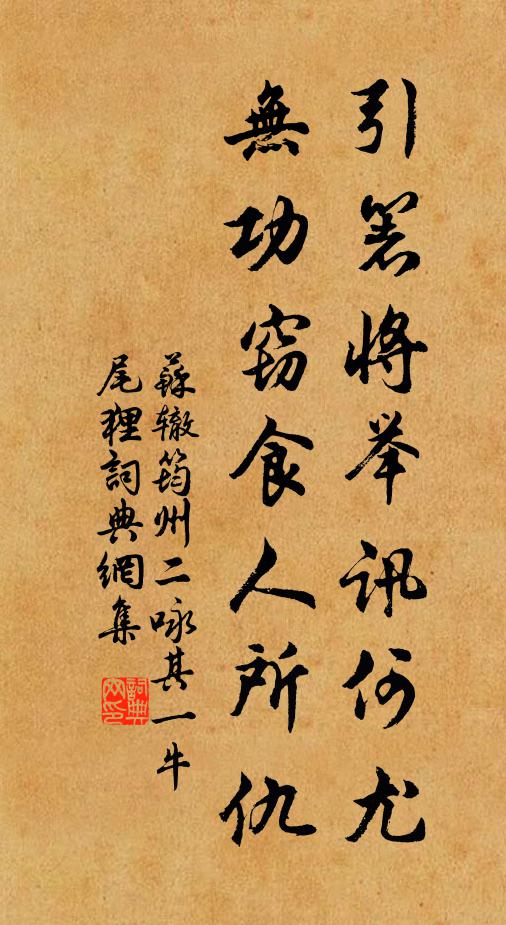 引箸将举讯何尤
無功窃食人所仇
蘇辙筠州二咏其一牛
尾狸詞典網集
詞典
网印